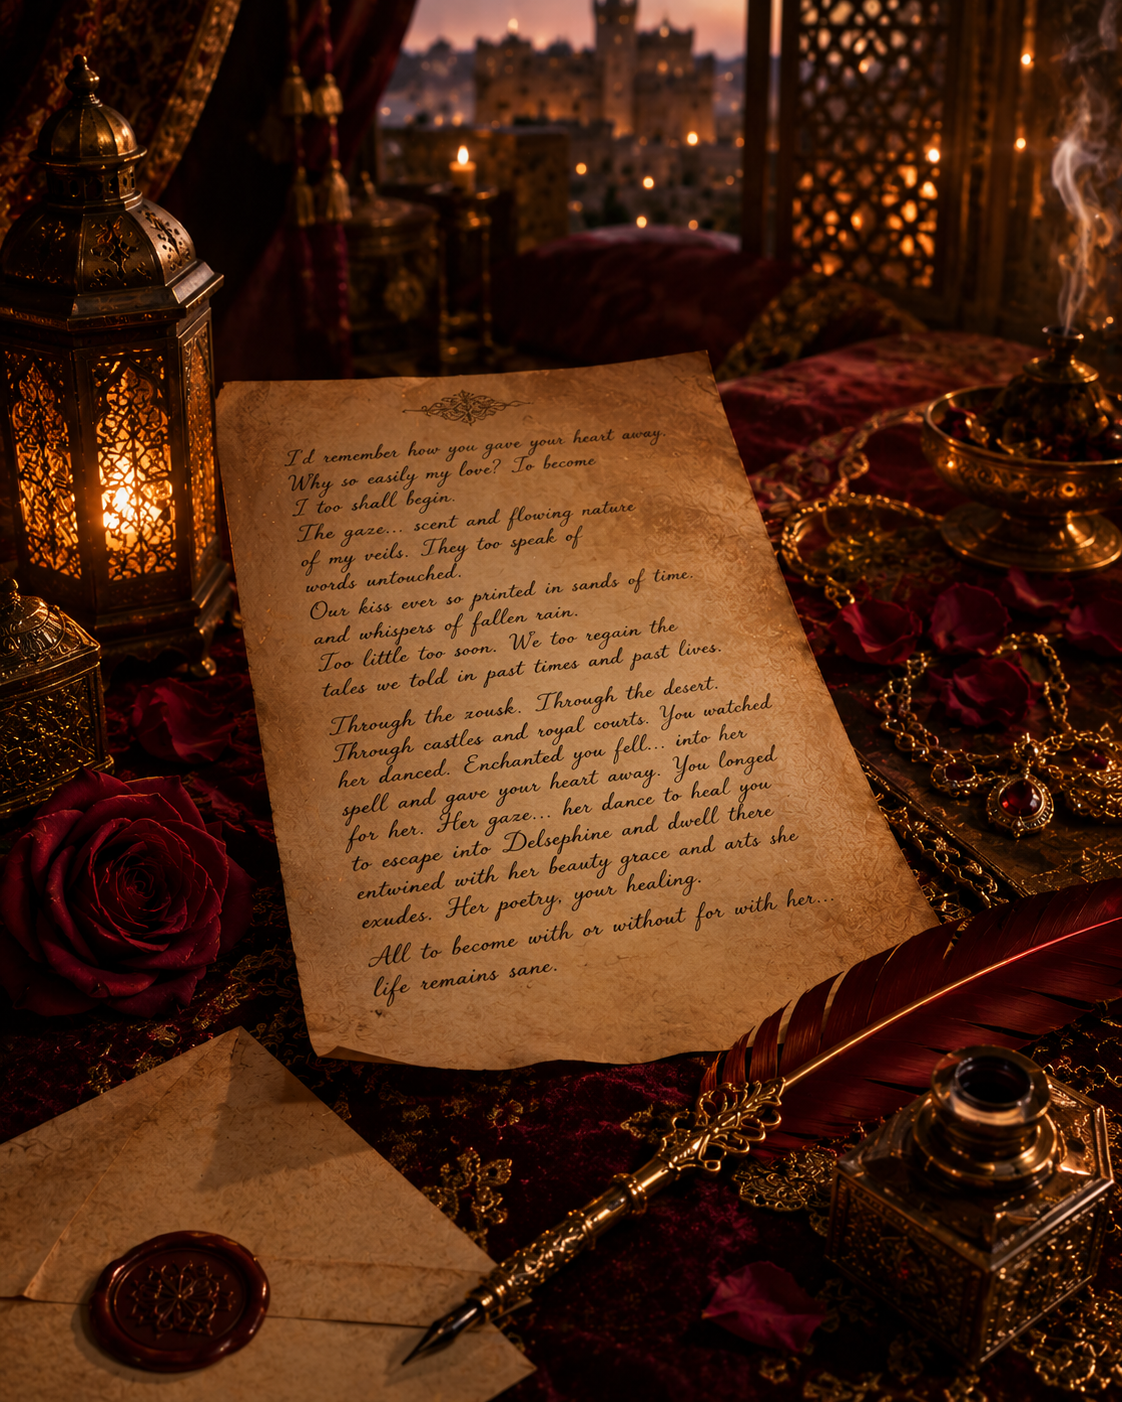 I'd remember how you gave your heart away.
Why so easily my love? To become
I too shall begin.
The gaze... scent and flowing nature
of my veils. They too speak of
words untouched.
Our kiss ever so printed in sands of time.
and whispers of fallen rain.
Too little too soon. We too regain the
tales we told in past times and past lives.
Through the zousk. Through the desert.
Through castles and royal courts. You watched
her danced. Enchanted you fell... into her
spell and gave your heart away. You longed
for her. Her gaze... her dance to heal you
to escape into Delsephine and dwell there
entwined with her beauty grace and arts she
exudes. Her poetry, your healing.
All to become with or without for with her...
life remains sane.